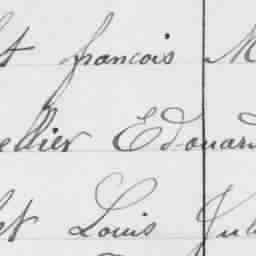 t françois M
ellier Edouard
et Louis Jul